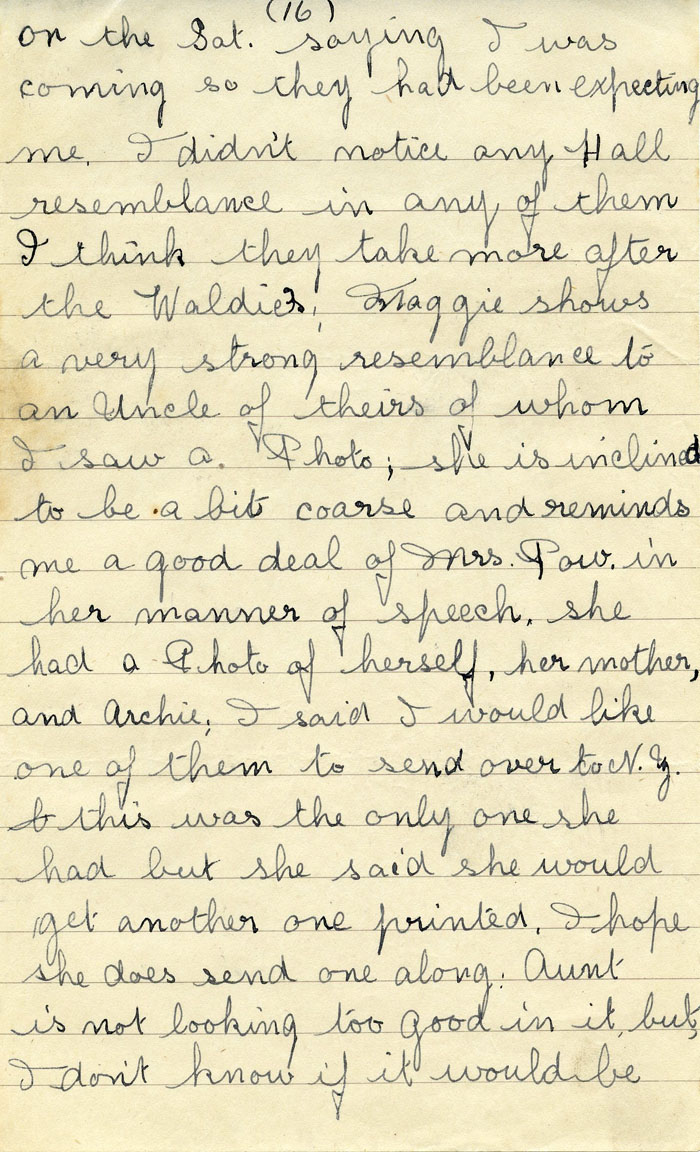 (16)
on the Sat. saying I was
coming so they had been expecting
me. I didn't notice any Hall
resemblance in any of them
I think they take more after
the Waldies; Maggie shows
a very strong resemblance to
an Uncle of theirs of whom
I saw a. Photo; she is inclined
to be a bit coarse and reminds
me a good deal of Mrs. Pow. in
her manner of speech, she
had a Photo of herself, her mother,
and Archie; I said I would like
one of them to send over to N.Z.
& this was the only one she
had but she said she would
get another one printed, I hope
she does send one along; Aunt
is not looking too good in it, but,
I don't know if it would be